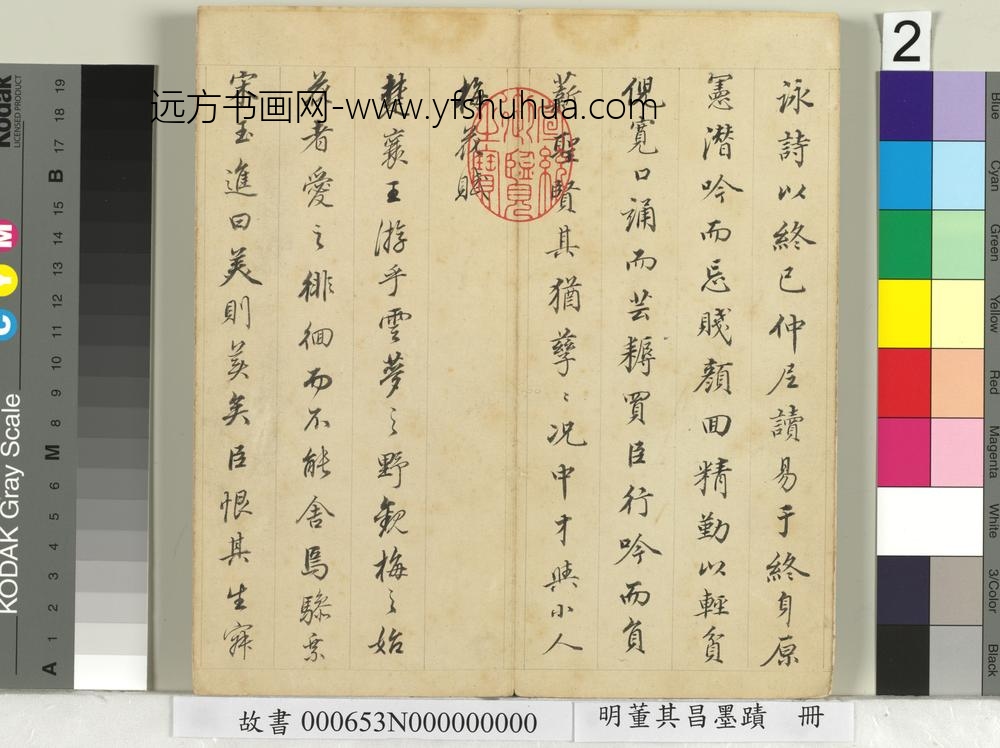 詠詩以終已仲尼讀易于終身原
憲潛吟而忘賤顏回精勤以輕貧
倪寬口誦而芸耨買臣行吟而負
薪聖賢其猶孳〻況中才與小人
梅花賦
楚襄王游乎雲夢之野觀梅之始
花者愛之徘徊而不能舍焉驂乘
宋玉進曰美則美矣臣恨其生寂
远方书画网-www.yfshuhua.com
2
Kodak
LICENSED PRODUCT
KODAK Gray Scale
C Y M
A 1 2 3 4 5 6 M 8 9 10 11 12 13 14 15 B 17 18 19
Blue
Cyan
Green
Yellow
Red
Magenta
White
3/Color
Black
故書 000653N000000000
明董其昌墨蹟 冊